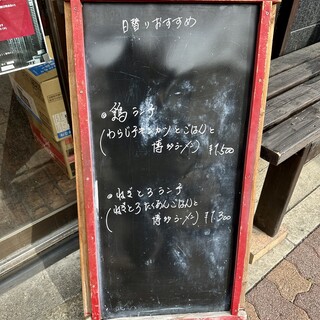 日替りおすすめ
◎ 鶏ランチ
(わらじチキンカツとごはんと
博多ラーメン) ¥1,500
◎ ねぎとろランチ
(ねぎとろたくあんごはんと
博多ラーメン) ¥1,300